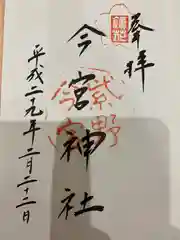 奉拝
今宮神社
紫野
平成二十九年二月二十二日